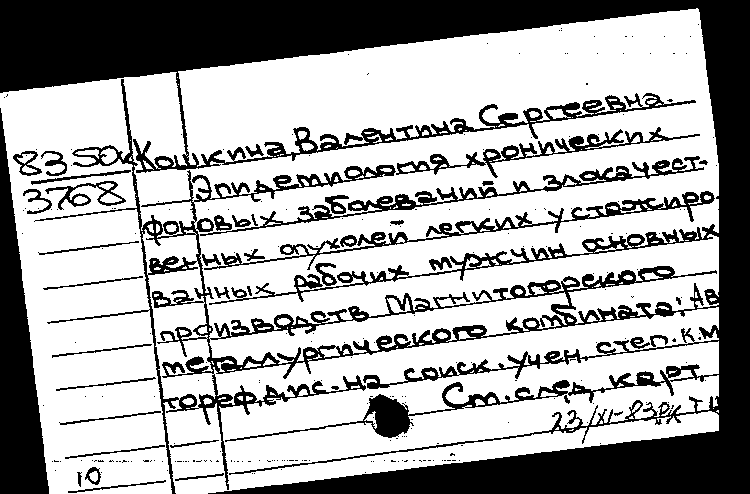 8350к Кошкина, Валентина Сергеевна.
3768 Эпидемиология хронических
фоновых заболеваний и злокачест-
венных опухолей легких у стажиро-
ванных рабочих мужчин основных
производств Магнитогорского
металлургического комбината: Ав
тореф. дис. на соиск. учен. степ. к.м
См. след. карт.
23/XI-83
10